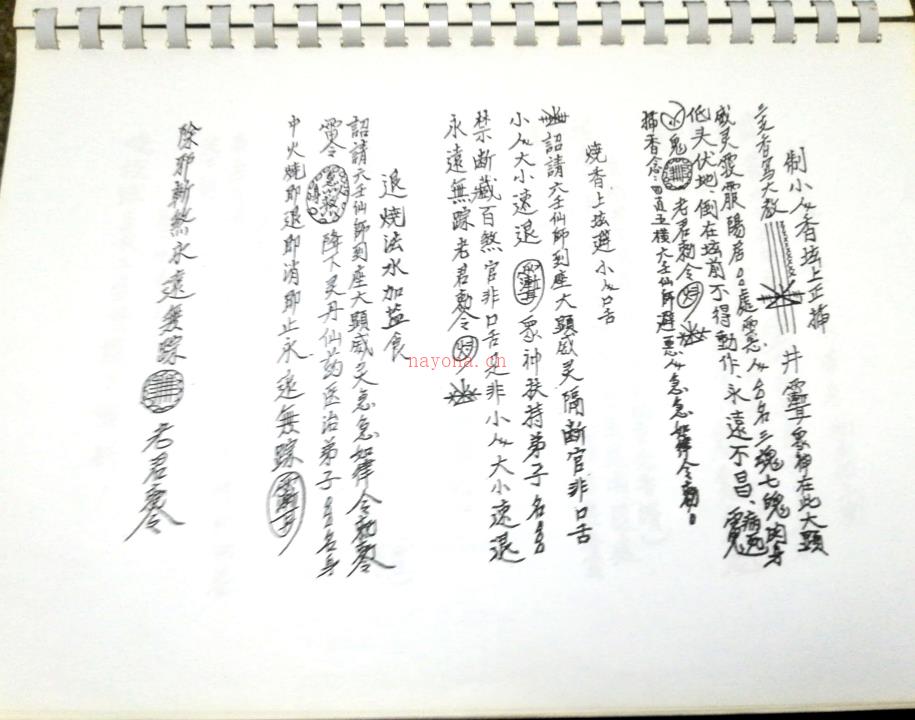 制小人香垓上正插
三支香写大教 井 众神在此大顕
威灵 服陽居 處 恶人 名三魂七魄肉身
低头伏地倒在垓前不得動作、永远不昌、病死
鬼 老君勅令
插香念 五横六壬仙師避悪人急急如律令勅
焼香上垓避小人口舌
詔請六壬仙師到座大顕威灵隔断官非口舌
小人大小速退 眾神扶持弟子名
禁断藏百煞官非口舌是非小人大小速退
永遠無踪老君勅令
退焼法水加盐食
詔請六壬仙師到座大顕威灵急急如律令勅令
降下灵丹仙药医治弟子 名身
中火焼即退即消即止永遠無踪
除邪斬煞永遠無踪 老君勅令
nayona.cn